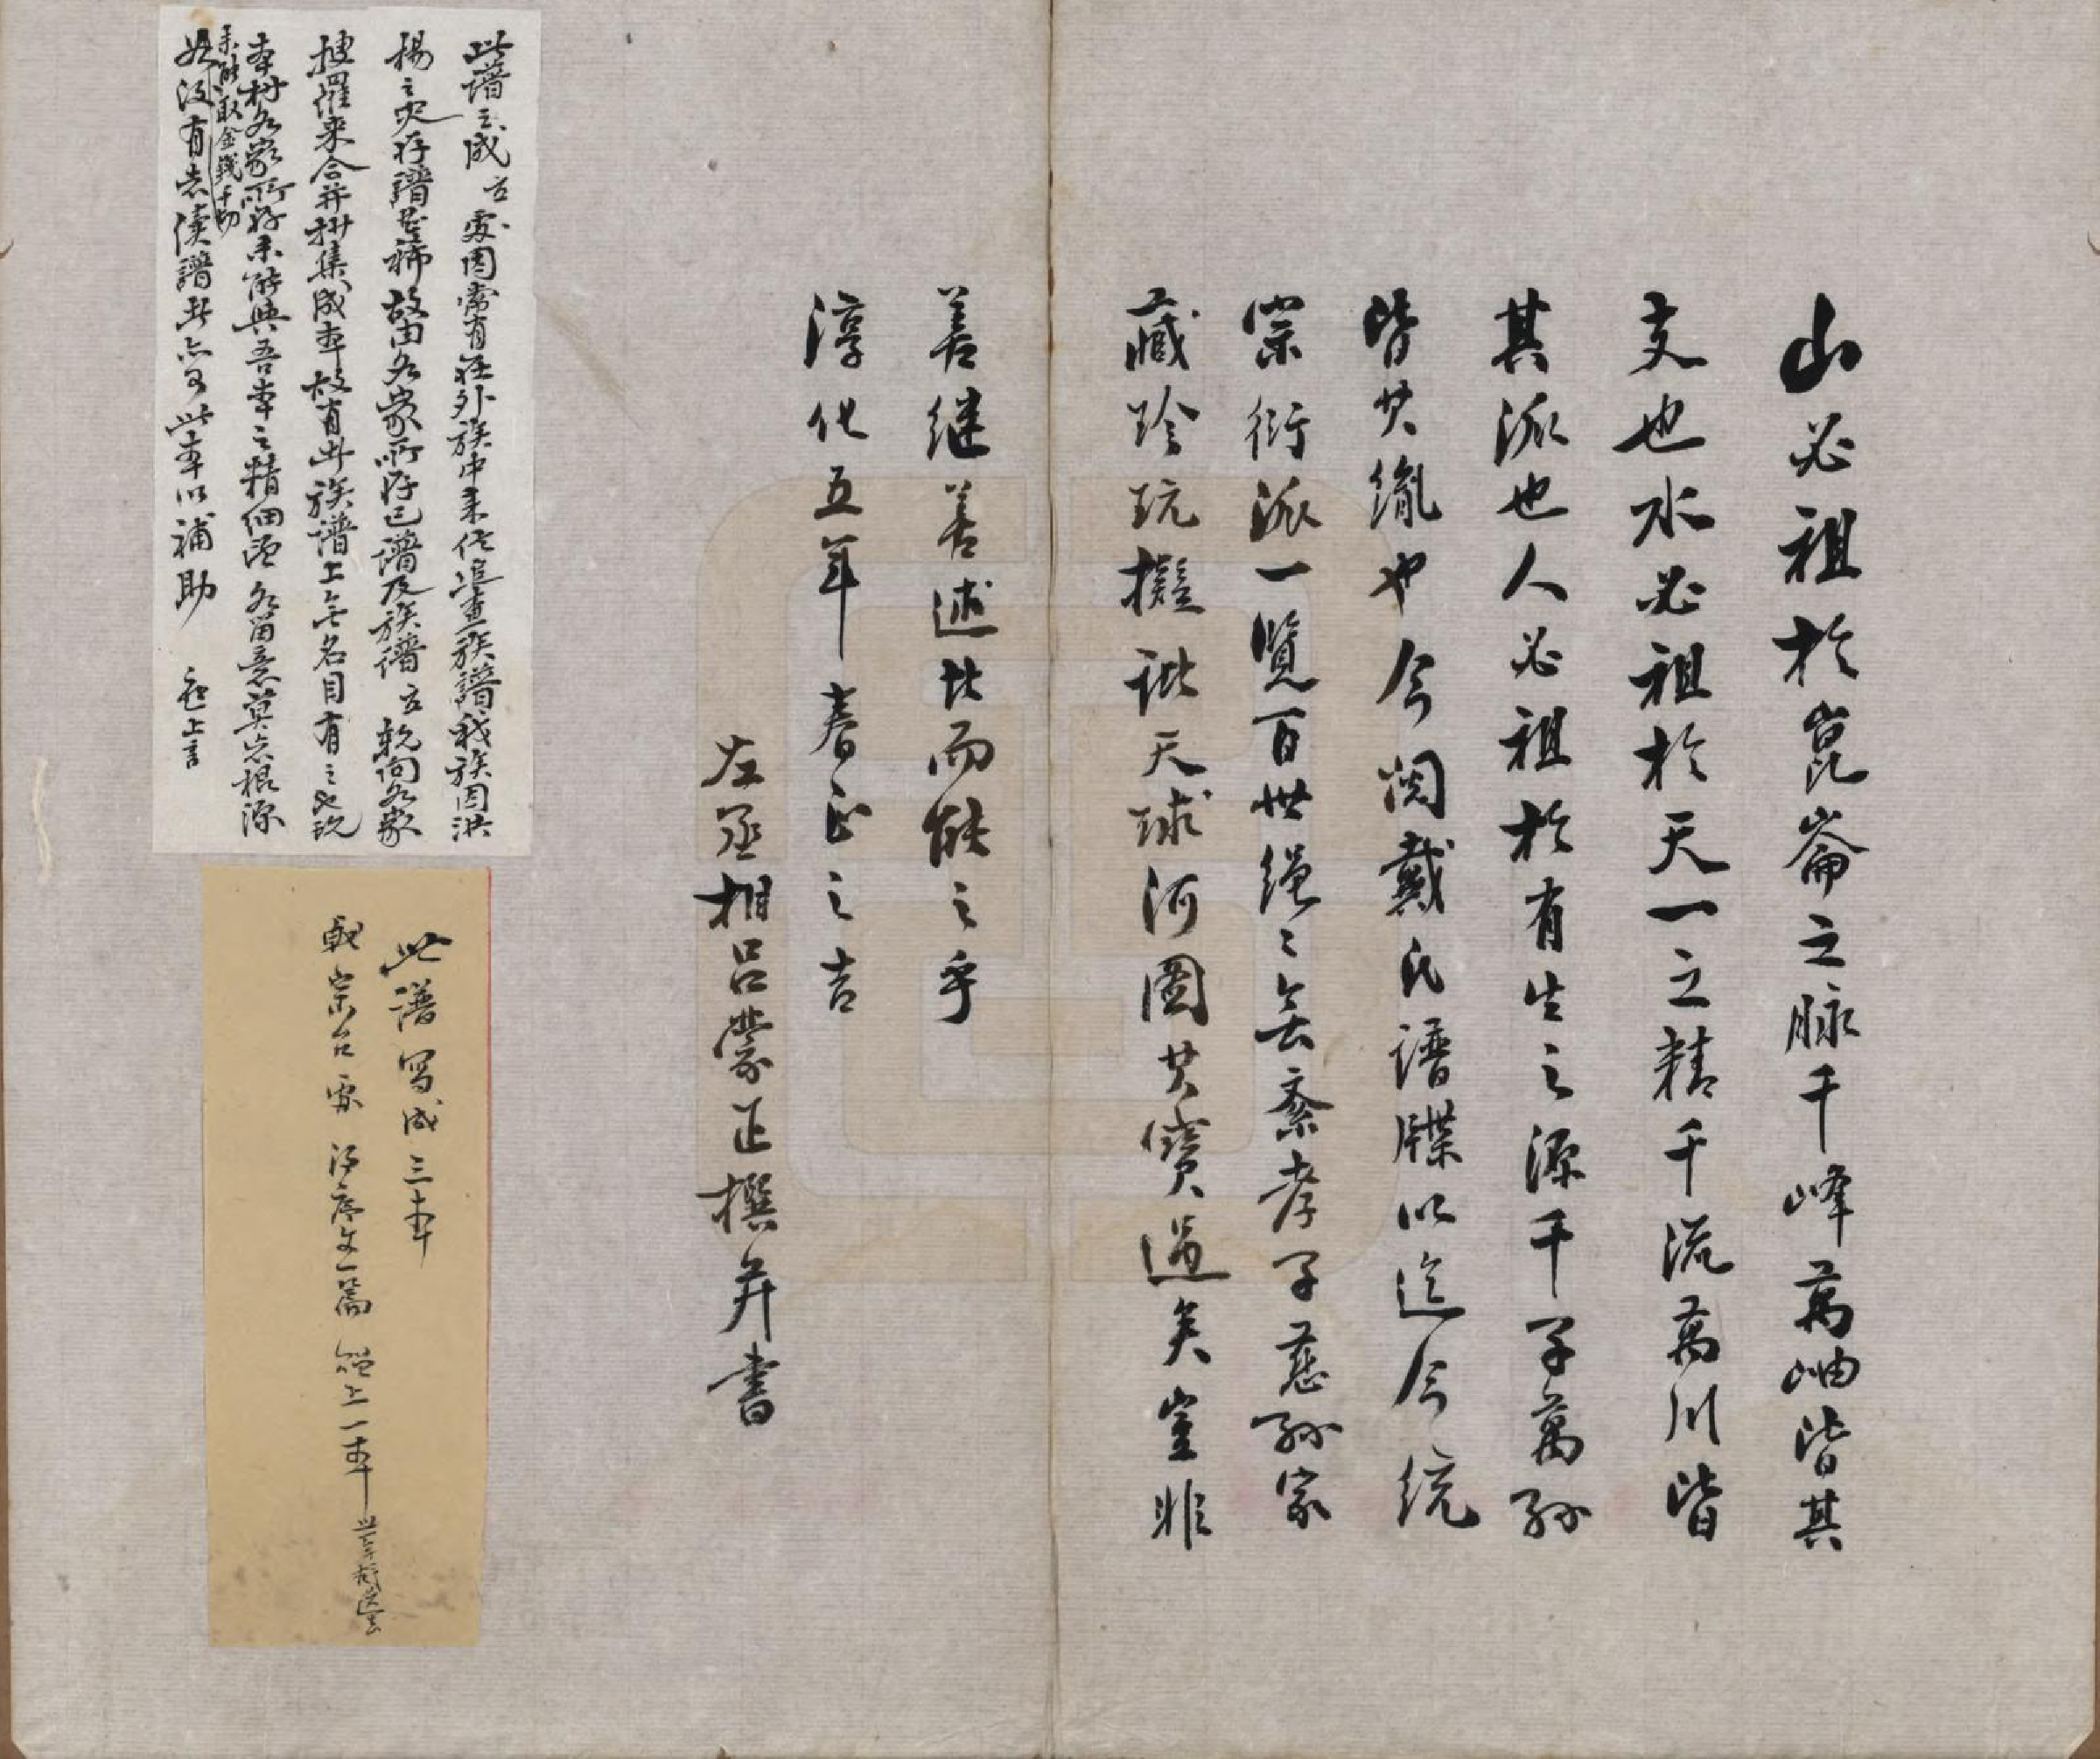 山必祖於崑崙之脉千峰萬岫皆其
支也水必祖於天一之精千流萬川皆
其派也人必祖於有生之源千子萬孫
皆其胤也今閱戴氏譜牒以迄今統
宗衍派一覽百世繩〻無紊孝子慈孫家
藏珍玩擬詘天球河圖其寶過矣豈非
善继善述比而能之乎
淳化五年春正之吉
左丞相呂蒙正撰并書
此譜之成立處因常有在外族中来信追查族譜我族因洪
楊之灾存譜甚稀故由各家所存己譜及族譜立乾向各家
搜羅来合并抄集成本故有此族譜上無名目有之也現
本村各家所存未能與吾本之精细 各留意莫忘根源
未能取金錢
如没有志续譜此亦可此本以補助 上言
此譜写成三本
宗台要 序文一篇 上一本